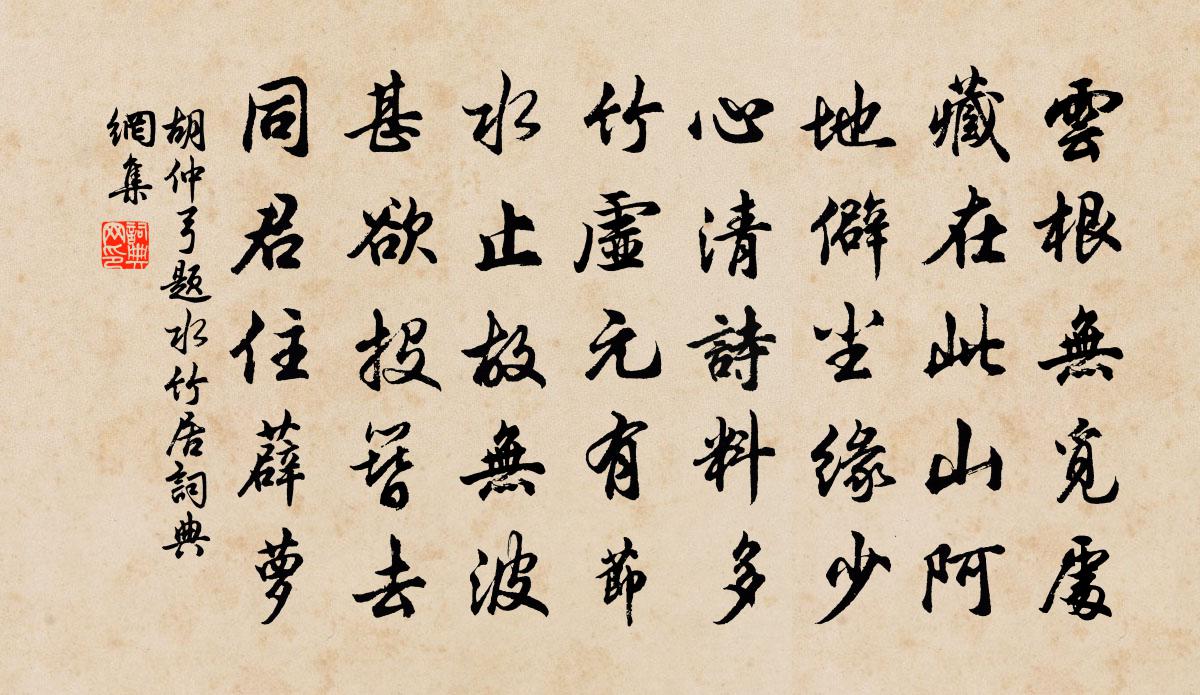 雲根無覓處
藏在此山阿
地僻塵緣少
心清詩料多
竹虛元有節
水止故無波
甚欲投簪去
同君住薜萝
胡仲弓题水竹居詞典
網集
詞典网印